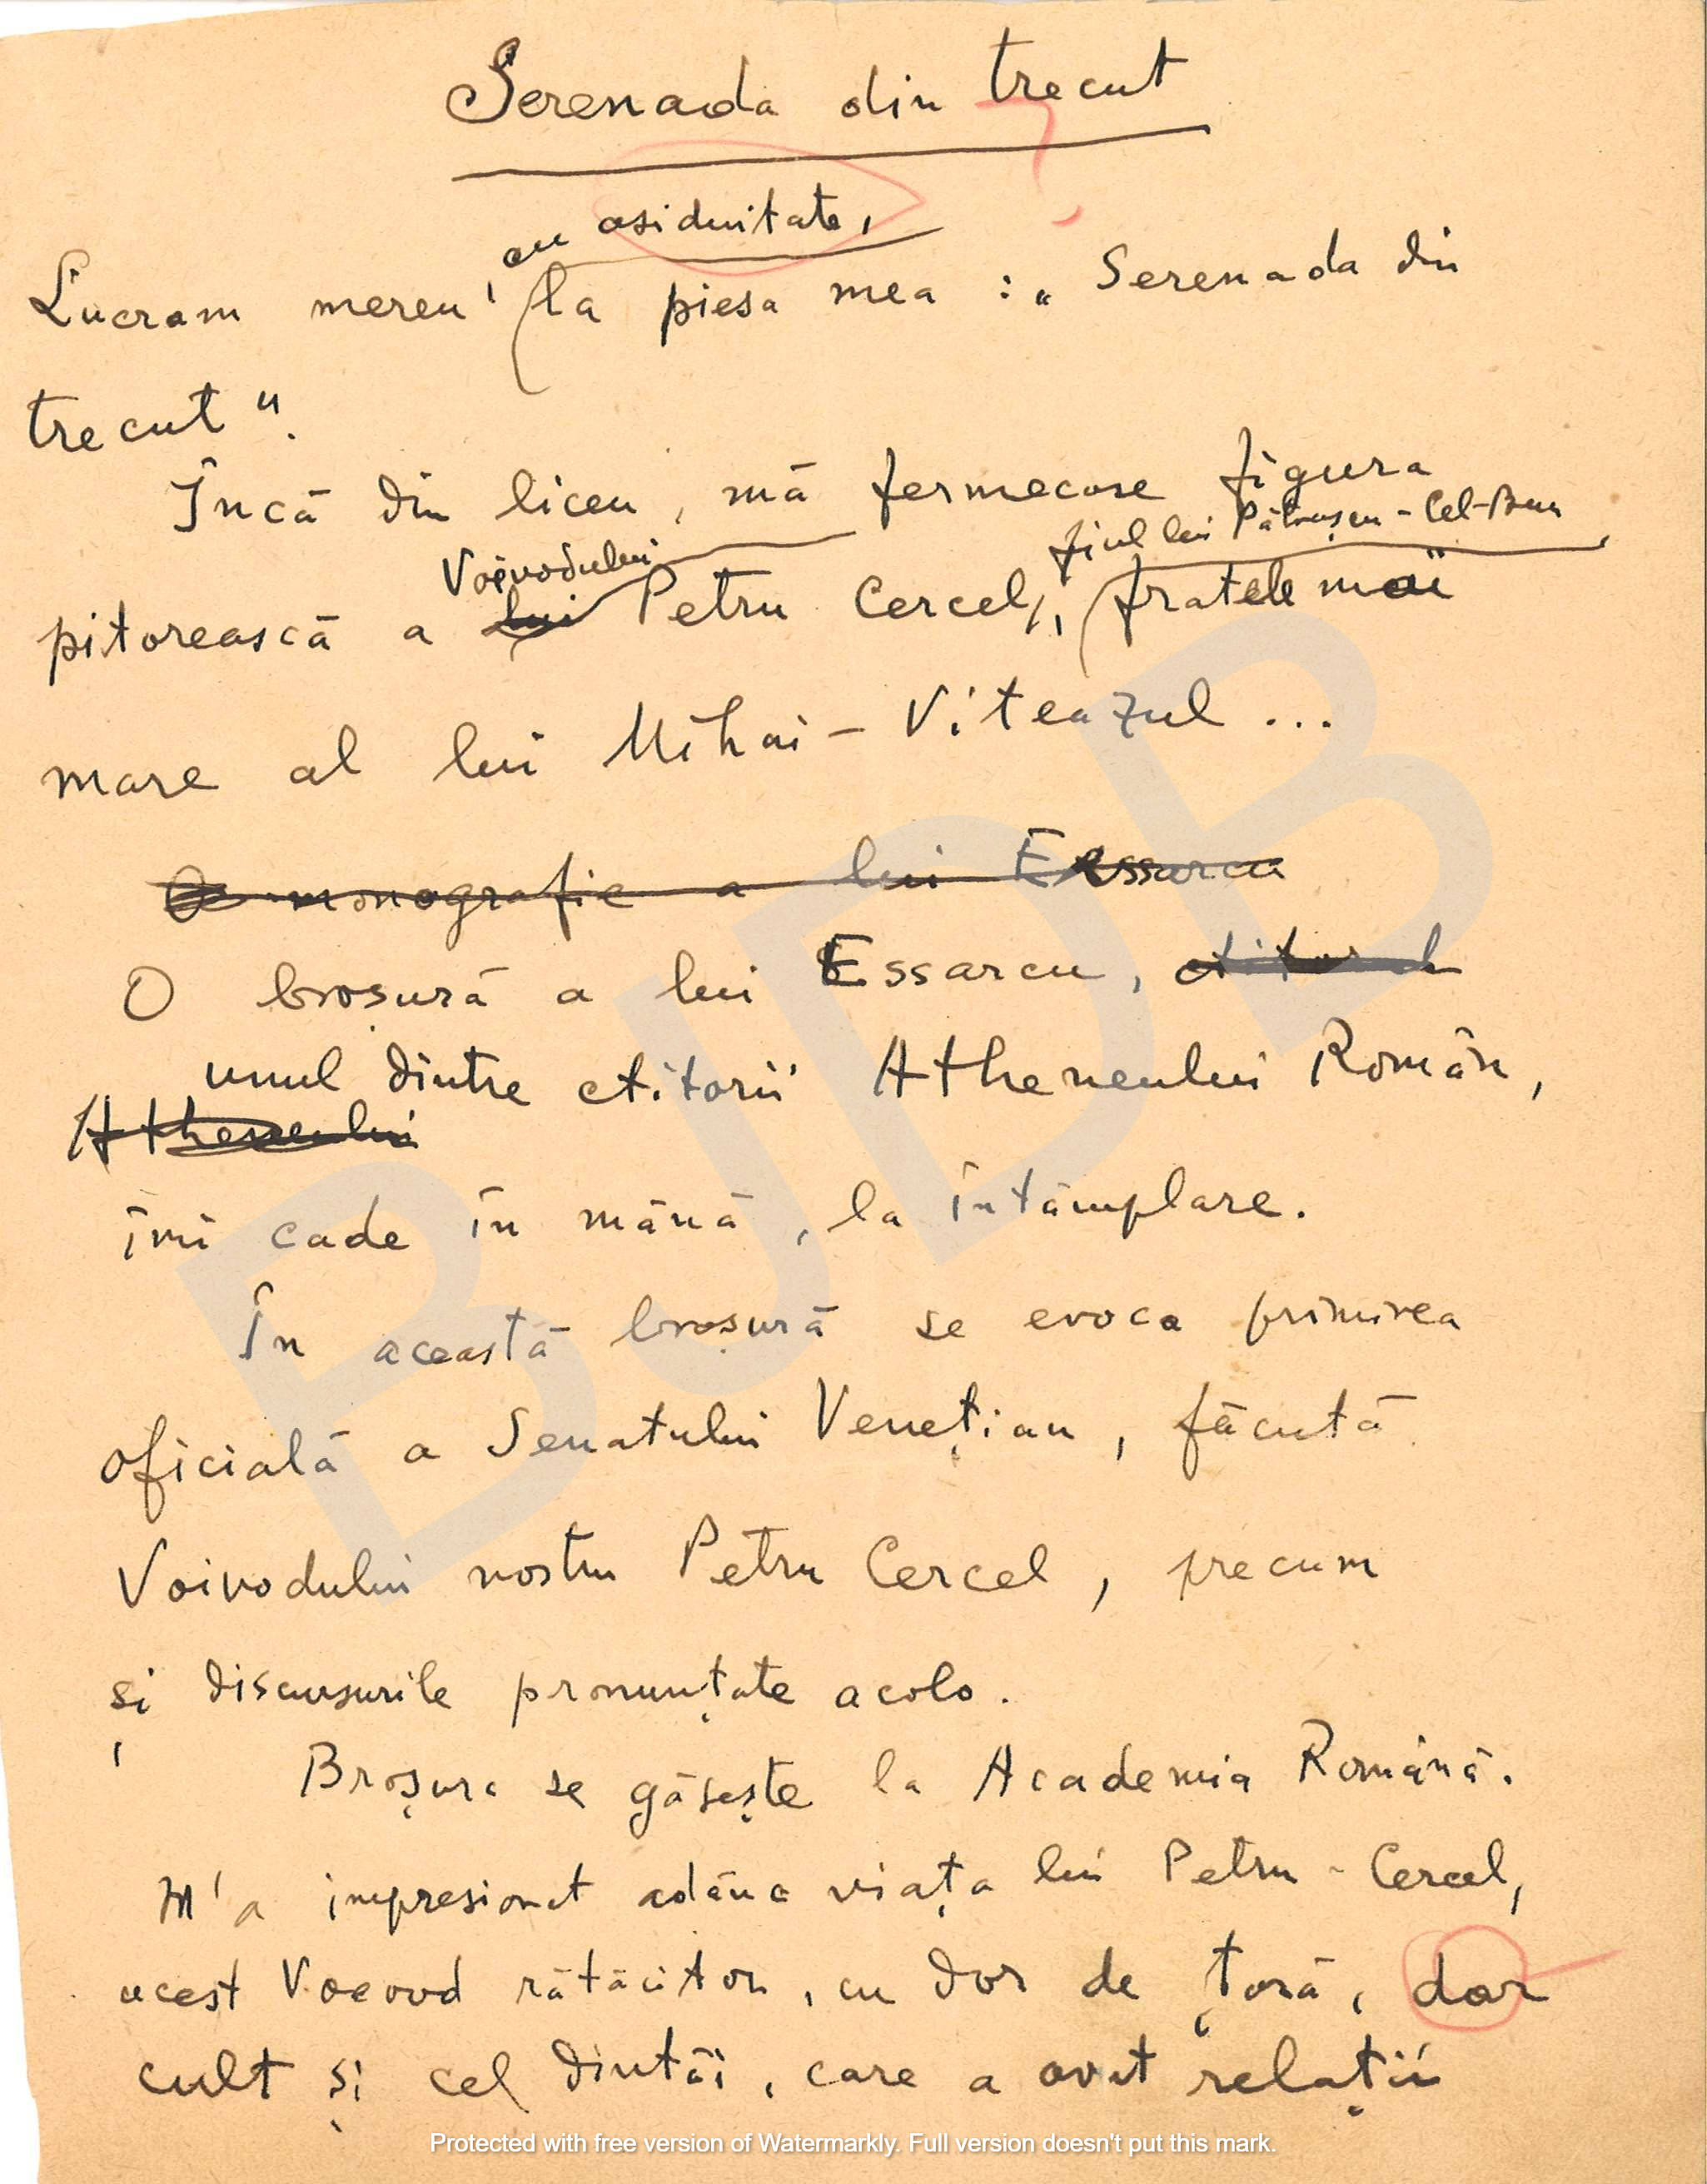 Serenada din trecut
cu asiduitate,
Lucram mereu, la piesa mea : „Serenada din
trecut".
Încă din liceu, mă fermecase figura
Voivodului fiul lui Pătrașcu-Cel-Bun,
pitorească a lui Petru Cercel, fratele mai
mare al lui Mihai-Viteazul ...
O monografie a lui Essarcu
O broșură a lui Essarcu, ctitorul
unul dintre ctitorii Atheneului Român,
Atheneului
îmi cade în mână, la întâmplare.
În această broșură se evoca primirea
oficială a Senatului Venețian, făcută
Voivodului nostru Petru Cercel, precum
și discursurile pronunțate acolo.
Broșura se găsește la Academia Română.
M'a impresionat adânc viața lui Petru-Cercel,
acest Voevod rătăcitor, cu dor de țară, dar
cult și cel dintâi, care a avut relații
BJDB
Protected with free version of Watermarkly. Full version doesn't put this mark.